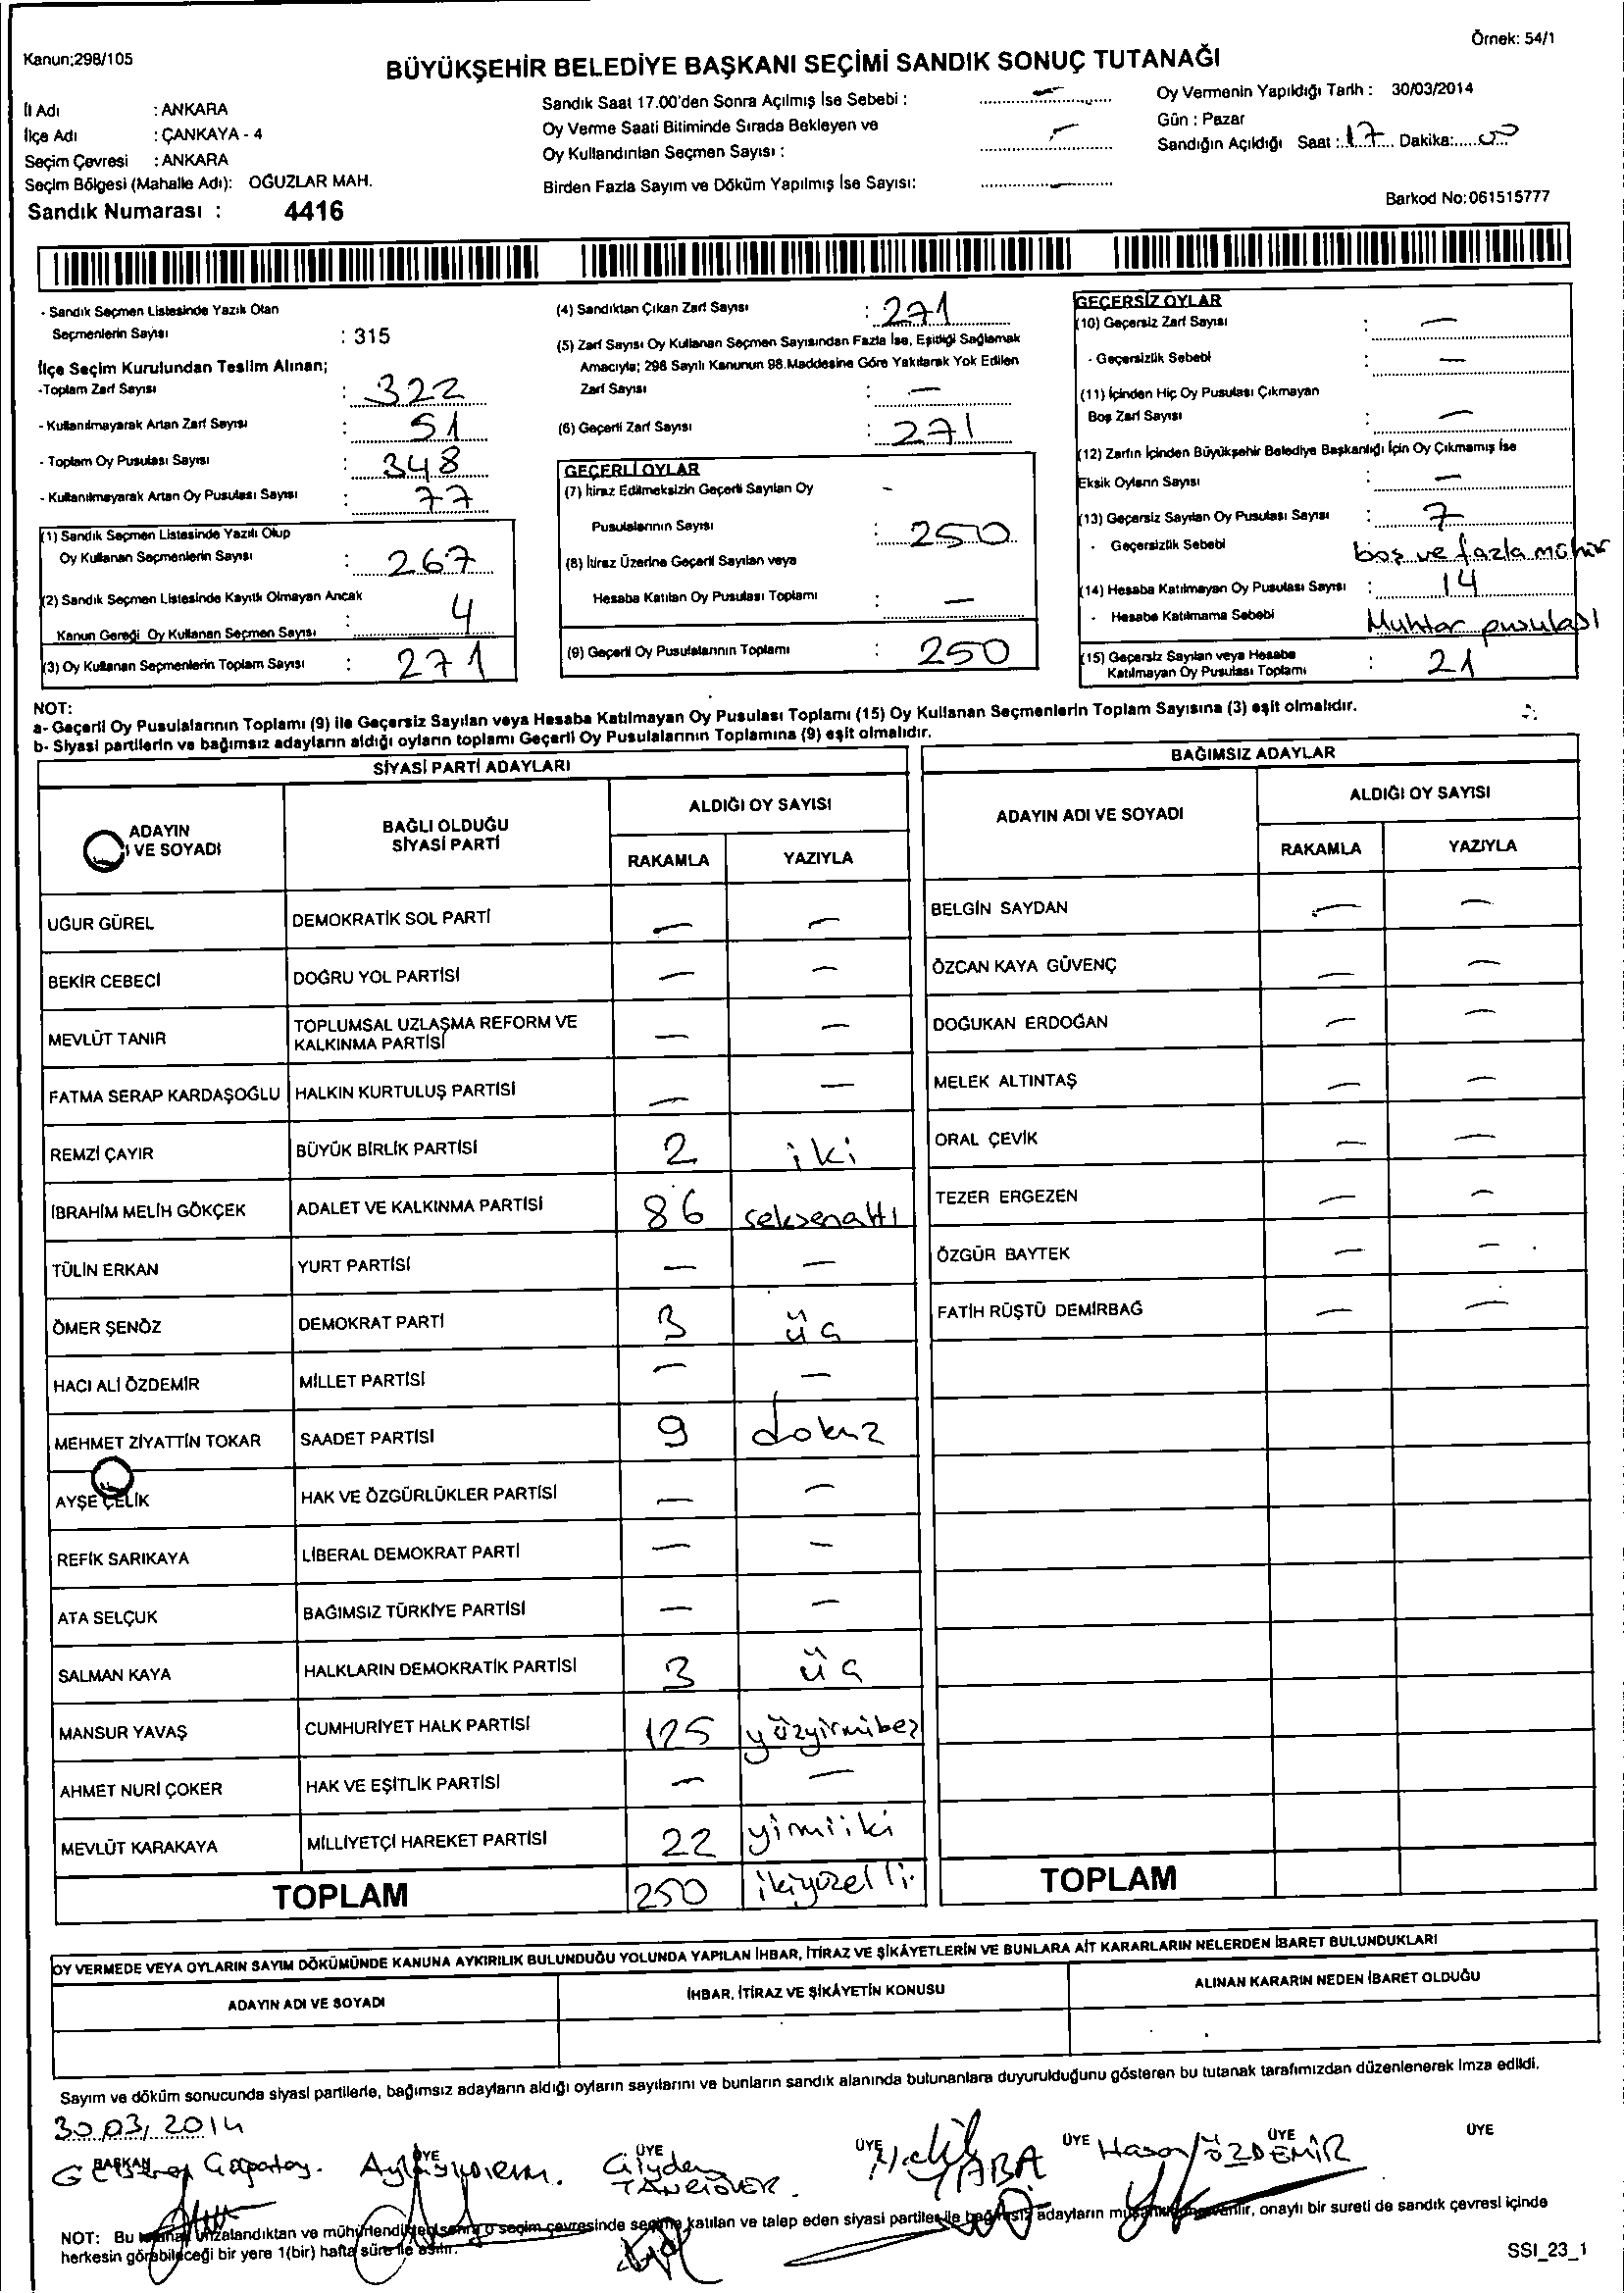 Kanun;298/105
Örnek: 54/1
BÜYÜKŞEHİR BELEDİYE BAŞKANI SEÇİMİ SANDIK SONUÇ TUTANAĞI
İl Adı : ANKARA
İlçe Adı : ÇANKAYA - 4
Seçim Çevresi : ANKARA
Seçim Bölgesi (Mahalle Adı): OĞUZLAR MAH.
Sandık Numarası : 4416
Sandık Saat 17.00'den Sonra Açılmış İse Sebebi : —
Oy Verme Saati Bitiminde Sırada Bekleyen ve
Oy Kullandırılan Seçmen Sayısı : —
Birden Fazla Sayım ve Döküm Yapılmış İse Sayısı: —
Oy Vermenin Yapıldığı Tarih : 30/03/2014
Gün : Pazar
Sandığın Açıldığı Saat : 17 Dakika: 00
Barkod No:061515777
- Sandık Seçmen Listesinde Yazılı Olan
Seçmenlerin Sayısı : 315
İlçe Seçim Kurulundan Teslim Alınan;
-Toplam Zarf Sayısı : 322
- Kullanılmayarak Artan Zarf Sayısı : 51
- Toplam Oy Pusulası Sayısı : 348
- Kullanılmayarak Artan Oy Pusulası Sayısı : 77
(1) Sandık Seçmen Listesinde Yazılı Olup
Oy Kullanan Seçmenlerin Sayısı : 267
(2) Sandık Seçmen Listesinde Kayıtlı Olmayan Ancak
Kanun Gereği Oy Kullanan Seçmen Sayısı : 4
(3) Oy Kullanan Seçmenlerin Toplam Sayısı : 271
(4) Sandıktan Çıkan Zarf Sayısı : 271
(5) Zarf Sayısı Oy Kullanan Seçmen Sayısından Fazla İse, Eşitliği Sağlamak
Amacıyla; 298 Sayılı Kanunun 98.Maddesine Göre Yakılarak Yok Edilen
Zarf Sayısı : —
(6) Geçerli Zarf Sayısı : 271
GEÇERLİ OYLAR
(7) İtiraz Edilmeksizin Geçerli Sayılan Oy -
Pusulalarının Sayısı : 250
(8) İtiraz Üzerine Geçerli Sayılan veya
Hesaba Katılan Oy Pusulası Toplamı : —
(9) Geçerli Oy Pusulalarının Toplamı : 250
GEÇERSİZ OYLAR
(10) Geçersiz Zarf Sayısı : —
- Geçersizlik Sebebi : —
(11) İçinden Hiç Oy Pusulası Çıkmayan
Boş Zarf Sayısı : —
(12) Zarfın İçinden Büyükşehir Belediye Başkanlığı İçin Oy Çıkmamış İse
Eksik Oyların Sayısı : —
(13) Geçersiz Sayılan Oy Pusulası Sayısı : 7
- Geçersizlik Sebebi boş ve fazla mühür
(14) Hesaba Katılmayan Oy Pusulası Sayısı : 14
- Hesaba Katılmama Sebebi Muhtar pusulası
(15) Geçersiz Sayılan veya Hesaba
Katılmayan Oy Pusulası Toplamı : 21
NOT:
a- Geçerli Oy Pusulalarının Toplamı (9) ile Geçersiz Sayılan veya Hesaba Katılmayan Oy Pusulası Toplamı (15) Oy Kullanan Seçmenlerin Toplam Sayısına (3) eşit olmalıdır.
b- Siyasi partilerin ve bağımsız adayların aldığı oyların toplamı Geçerli Oy Pusulalarının Toplamına (9) eşit olmalıdır.
SİYASİ PARTİ ADAYLARI
ADAYIN
I VE SOYADI
BAĞLI OLDUĞU
SİYASİ PARTİ
ALDIĞI OY SAYISI
RAKAMLA YAZIYLA
UĞUR GÜREL DEMOKRATİK SOL PARTİ — —
BEKİR CEBECİ DOĞRU YOL PARTİSİ — —
MEVLÜT TANIR TOPLUMSAL UZLAŞMA REFORM VE
KALKINMA PARTİSİ — —
FATMA SERAP KARDAŞOĞLU HALKIN KURTULUŞ PARTİSİ — —
REMZİ ÇAYIR BÜYÜK BİRLİK PARTİSİ 2 iki
İBRAHİM MELİH GÖKÇEK ADALET VE KALKINMA PARTİSİ 86 seksenaltı
TÜLİN ERKAN YURT PARTİSİ — —
ÖMER ŞENÖZ DEMOKRAT PARTİ 3 üç
HACI ALİ ÖZDEMİR MİLLET PARTİSİ — —
MEHMET ZİYATTİN TOKAR SAADET PARTİSİ 9 dokuz
AYŞE ÇELİK HAK VE ÖZGÜRLÜKLER PARTİSİ — —
REFİK SARIKAYA LİBERAL DEMOKRAT PARTİ — —
ATA SELÇUK BAĞIMSIZ TÜRKİYE PARTİSİ — —
SALMAN KAYA HALKLARIN DEMOKRATİK PARTİSİ 3 üç
MANSUR YAVAŞ CUMHURİYET HALK PARTİSİ 125 yüzyirmibeş
AHMET NURİ ÇOKER HAK VE EŞİTLİK PARTİSİ — —
MEVLÜT KARAKAYA MİLLİYETÇİ HAREKET PARTİSİ 22 yirmiiki
TOPLAM 250 ikiyüzelli
BAĞIMSIZ ADAYLAR
ADAYIN ADI VE SOYADI
ALDIĞI OY SAYISI
RAKAMLA YAZIYLA
BELGİN SAYDAN — —
ÖZCAN KAYA GÜVENÇ — —
DOĞUKAN ERDOĞAN — —
MELEK ALTINTAŞ — —
ORAL ÇEVİK — —
TEZER ERGEZEN — —
ÖZGÜR BAYTEK — —
FATİH RÜŞTÜ DEMİRBAĞ — —
TOPLAM
OY VERMEDE VEYA OYLARIN SAYIM DÖKÜMÜNDE KANUNA AYKIRILIK BULUNDUĞU YOLUNDA YAPILAN İHBAR, İTİRAZ VE ŞİKÂYETLERİN VE BUNLARA AİT KARARLARIN NELERDEN İBARET BULUNDUKLARI
ADAYIN ADI VE SOYADI İHBAR, İTİRAZ VE ŞİKÂYETİN KONUSU ALINAN KARARIN NEDEN İBARET OLDUĞU
Sayım ve döküm sonucunda siyasi partilerle, bağımsız adayların aldığı oyların sayılarını ve bunların sandık alanında bulunanlara duyurulduğunu gösteren bu tutanak tarafımızdan düzenlenerek imza edildi.
30.03.2014
BAŞKAN ÜYE ÜYE ÜYE ÜYE ÜYE ÜYE
TANRIÖVER YABA Hasan ÖZDEMİR
NOT: Bu tutanak imzalandıktan ve mühürlendikten sonra o seçim çevresinde seçime katılan ve talep eden siyasi partiler ile bağımsız adayların onaylı bir sureti de sandık çevresi içinde
herkesin görebileceği bir yere 1(bir) hafta süre ile asılır.
SSI_23_1